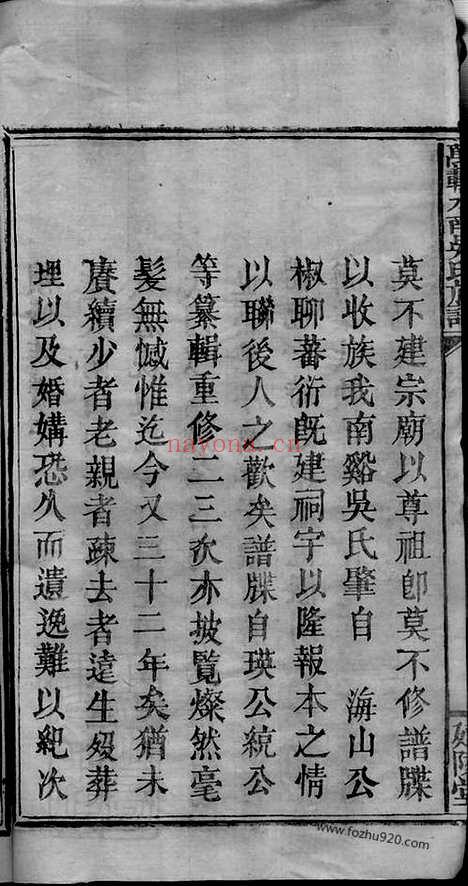 莫不建宗廟以尊祖卽莫不修譜牒
以收族我南谿吳氏肇自　海山公
椒聊蕃衍旣建祠宇以隆報本之情
以聯後人之歡矣譜牒自瑛公統公
等纂輯重修二三次亦披覽燦然毫
髮無憾惟迄今又三十二年矣猶未
賡續少者老親者疎去者遠生歿葬
埋以及婚媾恐久而遺逸難以紀次
nayona.cn
www.fozhu920.com